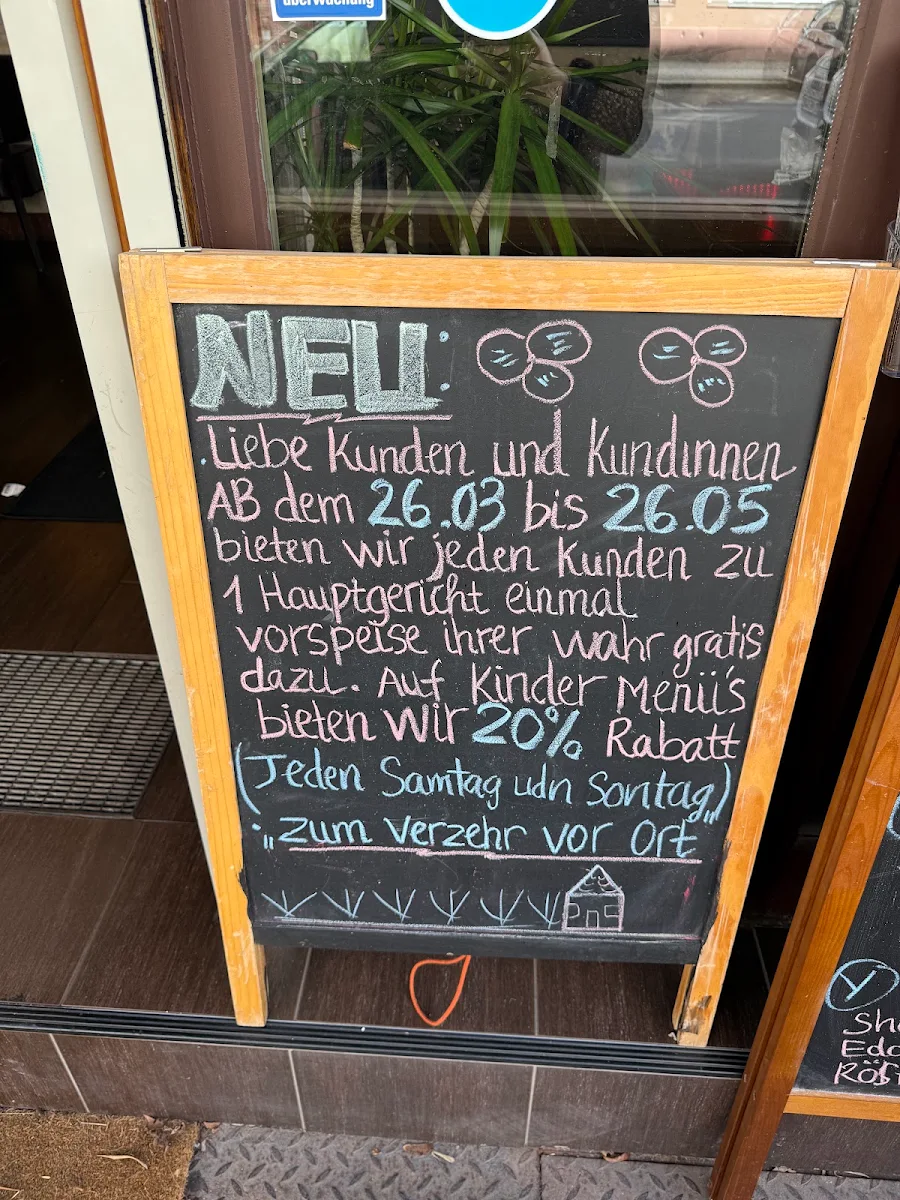 überwachung
NEU:
Liebe Kunden und Kundinnen
AB dem 26.03 bis 26.05
bieten wir jeden Kunden zu
1 Hauptgericht einmal
vorspeise ihrer wahr gratis
dazu. Auf Kinder Menü's
bieten wir 20% Rabatt
(Jeden Samtag udn Sontag)"
"zum Verzehr vor Ort"